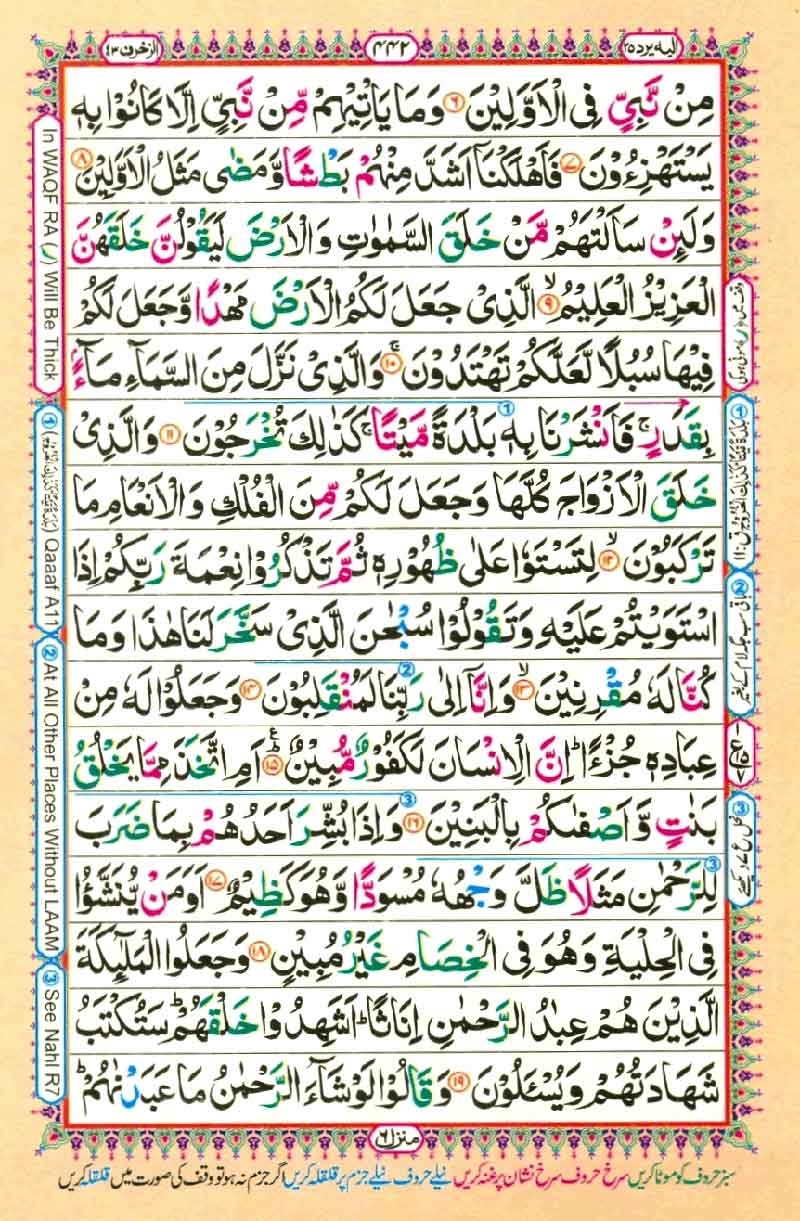 الیه یرد ۲۵
۴۴۲
الزخرف ۴۳
مِنْ نَّبِیٍّ فِی الْاَوَّلِیْنَ ۶ وَمَا یَاْتِیْهِمْ مِّنْ نَّبِیٍّ اِلَّا كَانُوْا بِهٖ
یَسْتَهْزِءُوْنَ ۷ فَاَهْلَكْنَاۤ اَشَدَّ مِنْهُمْ بَطْشًا وَّمَضٰی مَثَلُ الْاَوَّلِیْنَ ۸
وَلَىِٕنْ سَاَلْتَهُمْ مَّنْ خَلَقَ السَّمٰوٰتِ وَالْاَرْضَ لَیَقُوْلُنَّ خَلَقَهُنَّ
الْعَزِیْزُ الْعَلِیْمُ ۙ۹ الَّذِیْ جَعَلَ لَكُمُ الْاَرْضَ مَهْدًا وَّجَعَلَ لَكُمْ
فِیْهَا سُبُلًا لَّعَلَّكُمْ تَهْتَدُوْنَ ۚ۱۰ وَالَّذِیْ نَزَّلَ مِنَ السَّمَآءِ مَآءًۢ
بِقَدَرٍ ۚ فَاَنْشَرْنَا بِهٖ بَلْدَةً مَّیْتًا ۚ كَذٰلِكَ تُخْرَجُوْنَ ۱۱ وَالَّذِیْ
خَلَقَ الْاَزْوَاجَ كُلَّهَا وَجَعَلَ لَكُمْ مِّنَ الْفُلْكِ وَالْاَنْعَامِ مَا
تَرْكَبُوْنَ ۙ۱۲ لِتَسْتَوٗا عَلٰی ظُهُوْرِهٖ ثُمَّ تَذْكُرُوْا نِعْمَةَ رَبِّكُمْ اِذَا
اسْتَوَیْتُمْ عَلَیْهِ وَتَقُوْلُوْا سُبْحٰنَ الَّذِیْ سَخَّرَ لَنَا هٰذَا وَمَا
كُنَّا لَهٗ مُقْرِنِیْنَ ۙ۱۳ وَاِنَّاۤ اِلٰی رَبِّنَا لَمُنْقَلِبُوْنَ ۱۴ وَجَعَلُوْا لَهٗ مِنْ
عِبَادِهٖ جُزْءًا ؕ اِنَّ الْاِنْسَانَ لَكَفُوْرٌ مُّبِیْنٌ ؕ۱۵ اَمِ اتَّخَذَ مِمَّا یَخْلُقُ
بَنٰتٍ وَّاَصْفٰىكُمْ بِالْبَنِیْنَ ۱۶ وَاِذَا بُشِّرَ اَحَدُهُمْ بِمَا ضَرَبَ
لِلرَّحْمٰنِ مَثَلًا ظَلَّ وَجْهُهٗ مُسْوَدًّا وَّهُوَ كَظِیْمٌ ۱۷ اَوَمَنْ یُّنَشَّؤُا
فِی الْحِلْیَةِ وَهُوَ فِی الْخِصَامِ غَیْرُ مُبِیْنٍ ۱۸ وَجَعَلُوا الْمَلٰٓىِٕكَةَ
الَّذِیْنَ هُمْ عِبٰدُ الرَّحْمٰنِ اِنَاثًا ؕ اَشَهِدُوْا خَلْقَهُمْ ؕ سَتُكْتَبُ
شَهَادَتُهُمْ وَیُسْـَٔلُوْنَ ۱۹ وَقَالُوْا لَوْ شَآءَ الرَّحْمٰنُ مَا عَبَدْنٰهُمْ ؕ
منزل ۶
سبز حروف کو موٹا کریں سرخ حروف سرخ نشان پر غنہ کریں نیلے حروف نیلے جزم پر قلقلہ کریں اگر جزم نہ ہو تو وقف کی صورت میں قلقلہ کریں
In WAQF RA (ر) Will Be Thick
① Qaaaf A11
② At All Other Places Without LAAM
③ See Nahl R7